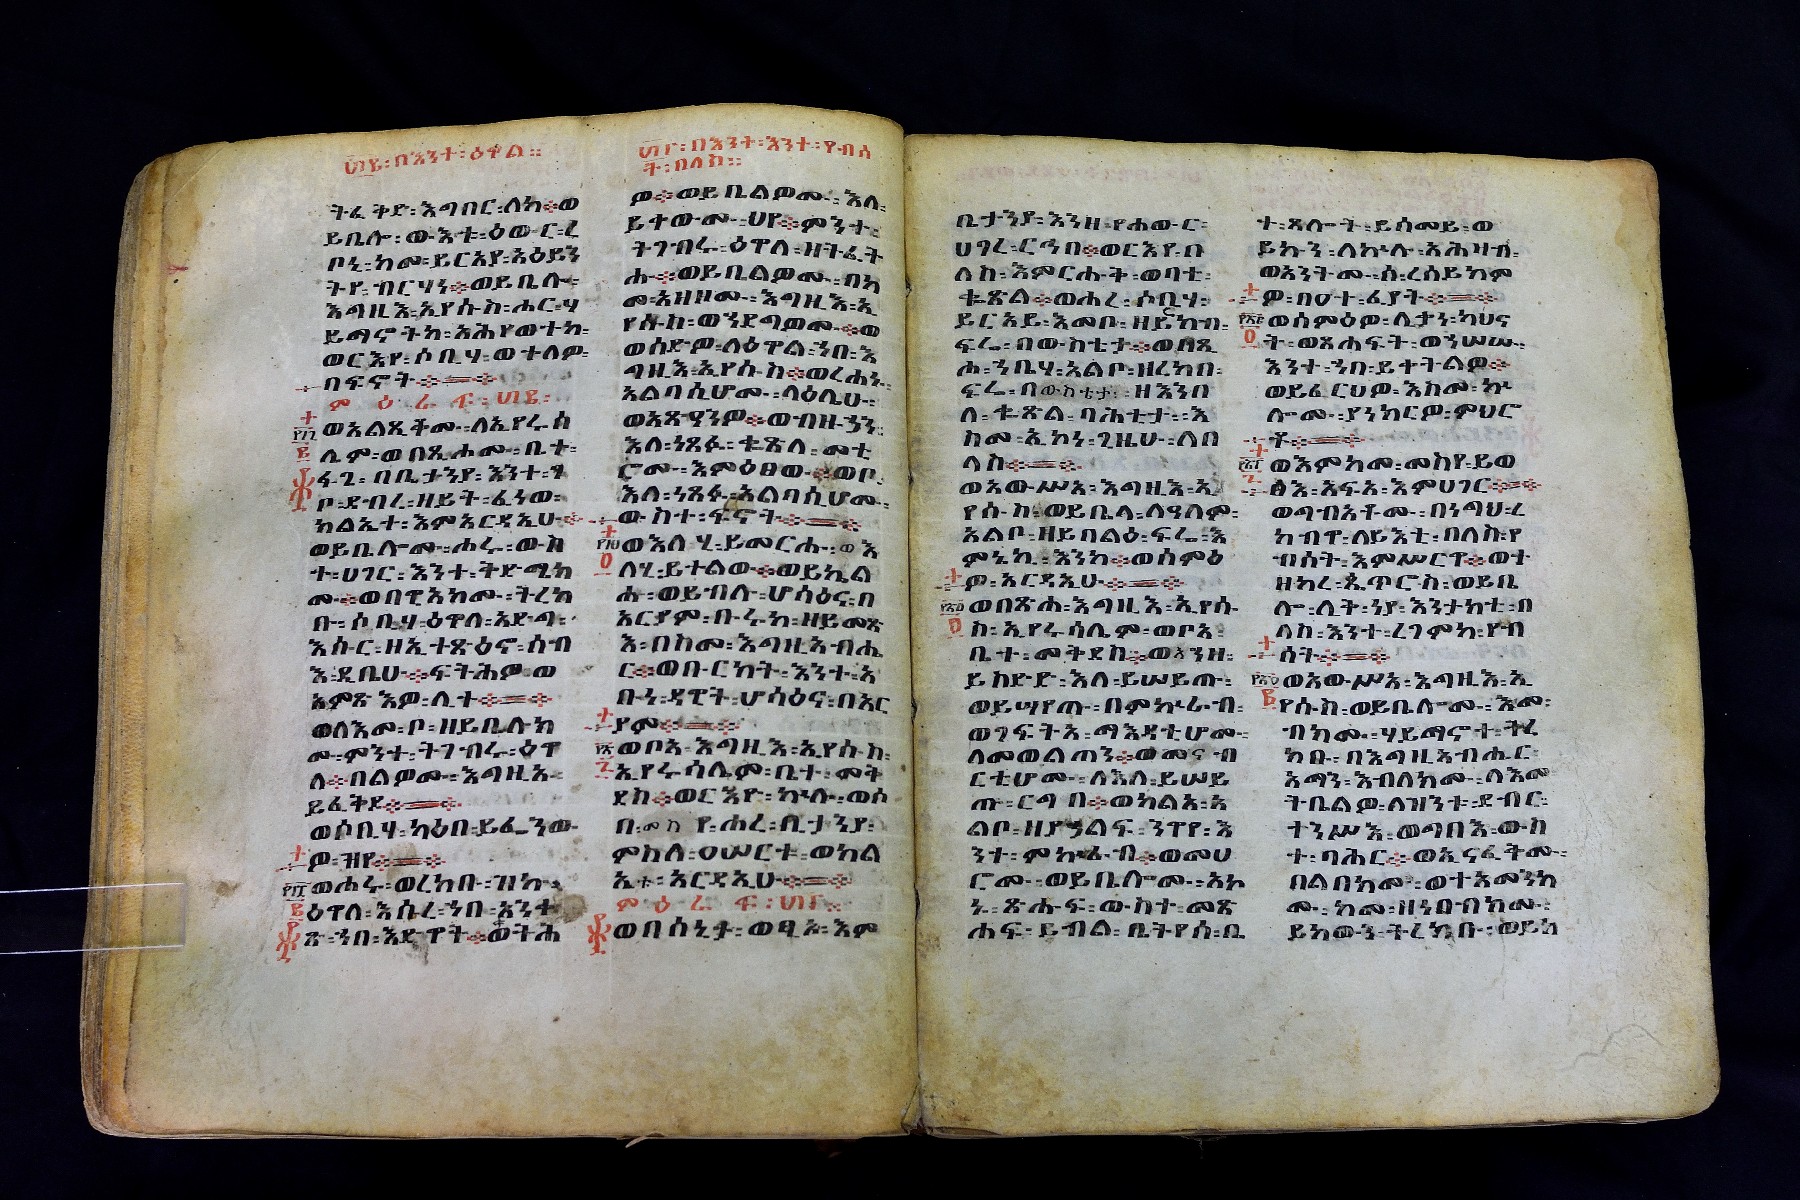 ፴፪፡ በእንተ፡ ዕዋል።
ትፈቅድ፡ እግበር፡ ለከ፨ወ
ይቤሎ፡ ውእቱ፡ ዕውር፡ ረ
ቦኒ፡ ከመ፡ ይርአያ፡ አዕይን
ትየ፡ ብርሃነ፨ወይቤሎ፡
እግዚእ፡ ኢየሱስ፡ ሑር፡ ሃ
ይማኖትከ፡ አሕየወተከ፡
ወርእየ፡ ሶቤሃ፡ ወተለዎ፡
በፍኖት፨
ምዕራፍ፡ ፴፪፡
ወአልጺቆሙ፡ ለኢየሩሳ
ሌም፡ ወበጺሖሙ፡ ቤተ፡
ፋጌ፡ በቢታንያ፡ እንተ፡ ኀ
ቦ፡ ደብረ፡ ዘይት፡ ፈነወ፡
ክልኤተ፡ እምአርዳኢሁ፨
ወይቤሎሙ፡ ሑሩ፡ ውስ
ተ፡ ሀገር፡ እንተ፡ ቅድሜክ
ሙ፨ወበዊአክሙ፡ ትረክ
ቡ፡ ሶቤሃ፡ ዕዋለ፡ አድግ፡
እሱር፡ ዘኢተጽዕኖ፡ ሰብ
እ፡ ዲቤሁ፨ፍትሕዎ፡ ወ
አምጽእዎ፡ ሊተ፨
ወለእመ፡ ቦ፡ ዘይቤለክ
ሙ፡ ምንተ፡ ትገብሩ፡ ዕዋ
ለ፨በልዎሙ፡ እግዚአ፡
ይፈቅደ፨
ወሶቤሃ፡ ካዕበ፡ ይፌንው
ዎ፡ ዝየ፨
ወሖሩ፡ ወረከቡ፡ ዝኰ፡
ዕዋለ፡ እሱረ፡ ኀበ፡ አንቀ
ጽ፡ ኀበ፡ እደዋት፨ወትሕ
፴፫፡ በእንተ፡ እንተ፡ የብሰ
ት፡ በለስ።
ዎ፨ወይቤልዎሙ፡ እለ፡
ይቀውሙ፡ ህየ፨ምንተ፡
ትገብሩ፡ ዕዋለ፡ ዘትፈት
ሑ፨ወይቤልዎሙ፡ በከ
መ፡ አዘዞሙ፡ እግዚእ፡ ኢ
የሱስ፡ ወኀደግዎሙ፨ወ
ወሰድዎ፡ ለዕዋል፡ ኀበ፡ እ
ግዚእ፡ ኢየሱስ፨ወረሐኑ፡
አልባሲሆሙ፡ ላዕሌሁ፡
ወአጽዓንዎ፨ወብዙኃን፡
እለ፡ ነጸፉ፡ ቈጽለ፡ መቲ
ሮሙ፡ እምዕፀው፨ወቦ
እለ፡ ነጸፉ፡ አልባሲሆሙ፡
ውስተ፡ ፍኖት፨
ወእለሂ፡ ይመርሑ፡ ወእ
ለሂ፡ ይተልው፨ወይኬል
ሑ፡ ወይብሉ፡ ሆሳዕና፡ በ
አርያም፡ ቡሩክ፡ ዘይመጽ
እ፡ በስመ፡ እግዚአብሔ
ር፨ወቡርክት፡ እንተ፡ አ
ቡነ፡ ዳዊት፡ ሆሳዕና፡ በአር
ያም፨
ወቦአ፡ እግዚእ፡ ኢየሱስ፡
ኢየሩሳሌም፡ ቤተ፡ መቅ
ደስ፨ወርእዮ፡ ኵሎ፡ ወሶ
በ፡ መስየ፡ ሖረ፡ ቢታንያ፡
ምስለ፡ ዐሠርተ፡ ወክል
ኤቱ፡ አርዳኢሁ፨
ምዕራፍ፡ ፴፫፡
ወበሳኒታ፡ ወፂኦ፡ እም
ቢታንያ፡ እንዘ፡ የሐውር፡
ሀገረ፡ ርኅበ፨ወርእየ፡ በ
ለስ፡ እምርሑቅ፡ ወባቲ፡
ቈጽል፨ወሖረ፡ ሶቤሃ፡
ይርአይ፡ እመቦ፡ ዘይከብ፡
ፍሬ፡ በውስቴታ፨ወበጺ
ሖ፡ ኀቤሃ፡ አልቦ፡ ዘረከበ፡
ፍሬ፡ በውስቴታ፡ ዘእንበ
ለ፡ ቈጽል፡ ባሕቲታ፡ እ
ስመ፡ ኢኮነ፡ ጊዜሁ፡ ለበ
ለስ፨
ወአውሥአ፡ እግዚእ፡ ኢ
የሱስ፡ ወይቤላ፡ ለዓለም፡
አልቦ፡ ዘይበልዕ፡ ፍሬ፡ እ
ምኔኪ፡ እንከ፨ወሰምዕ
ዎ፡ አርዳኢሁ፨
ወበጽሐ፡ እግዚእ፡ ኢየሱ
ስ፡ ኢየሩሳሌም፡ ወቦአ፡
ቤተ፡ መቅደስ፨ወአኀዘ፡
ይስድድ፡ እለ፡ ይሠይጡ፡
ወይሣየጡ፡ በምኵራብ፡
ወገፍትአ፡ ማእዳቲሆሙ፡
ለመወልጣን፨ወመናብ
ርቲሆሙ፡ ለእለ፡ ይሠይ
ጡ፡ ርግበ፨ወከልአ፡ አ
ልቦ፡ ዘያኃልፍ፡ ንዋየ፡ እ
ንተ፡ ምኵራብ፨ወመሀ
ሮሙ፡ ወይቤሎሙ፡ አኮ
ኑ፡ ጽሑፍ፡ ውስተ፡ መጽ
ሐፍ፡ ይብል፡ ቤትየሰ፡ ቤ
ተ፡ ጸሎት፡ ይሰመይ፡ ወ
ይኩን፡ ለኵሉ፡ አሕዛብ፡
ወአንትሙ፡ ሰ፡ ረሰይክም
ዎ፡ በዐተ፡ ፈያት፨
ወሰምዕዎ፡ ሊቃነ፡ ካህና
ት፡ ወጸሐፍት፡ ወኀሠሡ፡
እንተ፡ ኀበ፡ ይቀትልዎ፨
ወይፈርህዎ፡ እስመ፡ ኵ
ሎሙ፡ ያነክርዎ፡ ምህሮ
ቶ፨
ወእምከመ፡ መስየ፡ ይወ
ፅእ፡ አፍአ፡ እምሀገር፨
ወግብአቶሙ፡ በነግህ፡ ረ
ከብዋ፡ ለይእቲ፡ በለስ፡ የ
ብሰት፡ እምሥርዋ፨ወተ
ዘከረ፡ ጴጥሮስ፡ ወይቤ
ሎ፡ ሊቅ፡ ነያ፡ እንታክቲ፡ በ
ለስ፡ እንተ፡ ረገምከ፡ የብ
ሰት፨
ወአውሥአ፡ እግዚእ፡ ኢ
የሱስ፡ ወይቤሎሙ፡ እመ፡
ብክሙ፡ ሃይማኖተ፡ ትረ
ክቡ፡ በእግዚአብሔር፡
አማን፡ እብለክሙ፡ ለእመ
ትቤልዎ፡ ለዝንቱ፡ ደብር፡
ተንሥእ፡ ወግበእ፡ ውስ
ተ፡ ባሕር፨ወኢናፈቅሙ፡
በልበክሙ፡ ወተአመንክ
ሙ፡ ከመ፡ ዘነበብክሙ፡
ይከውን፡ ትረክቡ፡ ወይከ